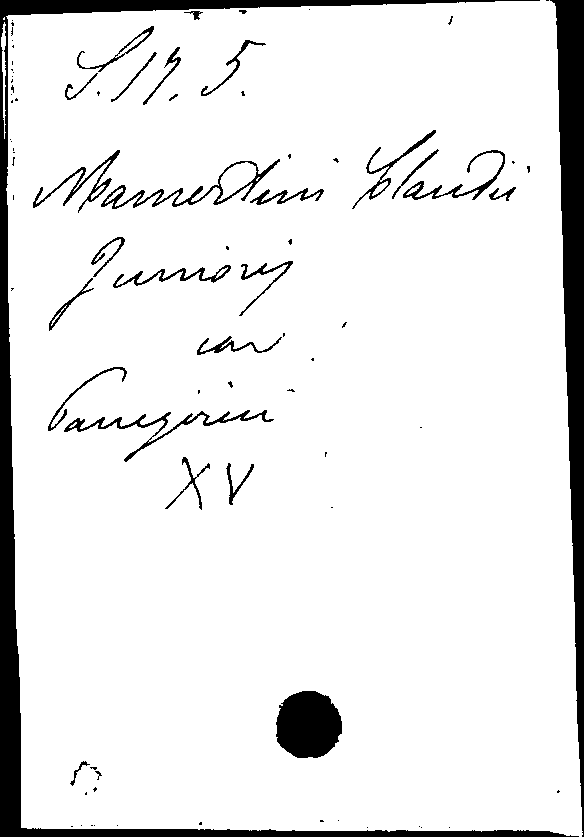 S. 17. 5.
Mamertini Claudii
Junioris
Panegirici
XV